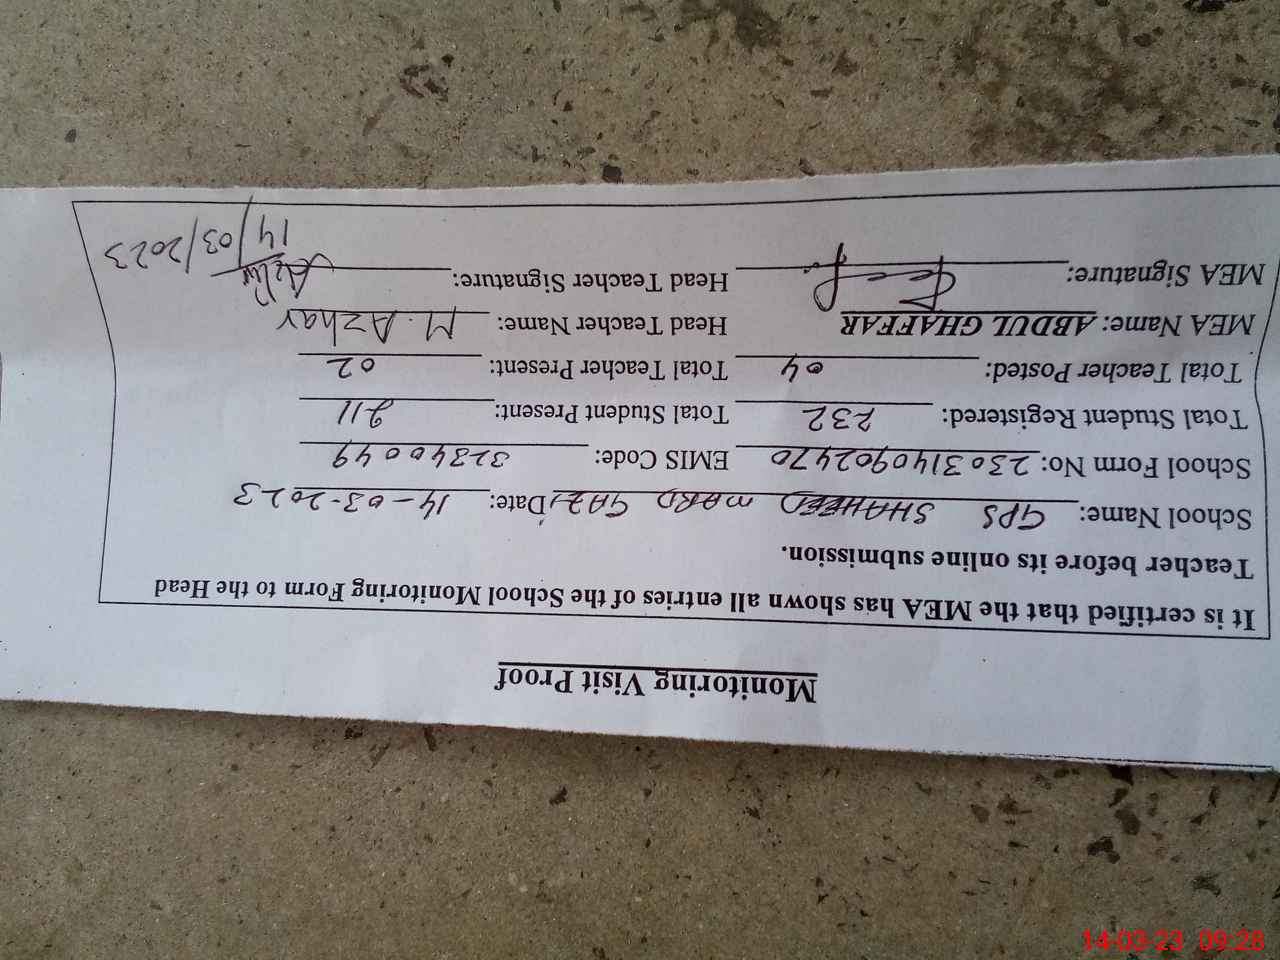 Monitoring Visit Proof
It is certified that the MEA has shown all entries of the School Monitoring Form to the Head
Teacher before its online submission.
School Name: GPS SHAHEED MARD GAZI Date: 14-03-2023
School Form No: 2303140902470 EMIS Code: 32340049
Total Student Registered: 232 Total Student Present: 211
Total Teacher Posted: 04 Total Teacher Present: 02
MEA Name: ABDUL GHAFFAR Head Teacher Name: M. Azhar
MEA Signature: Head Teacher Signature:
14/03/2023
14-03-23 09:28